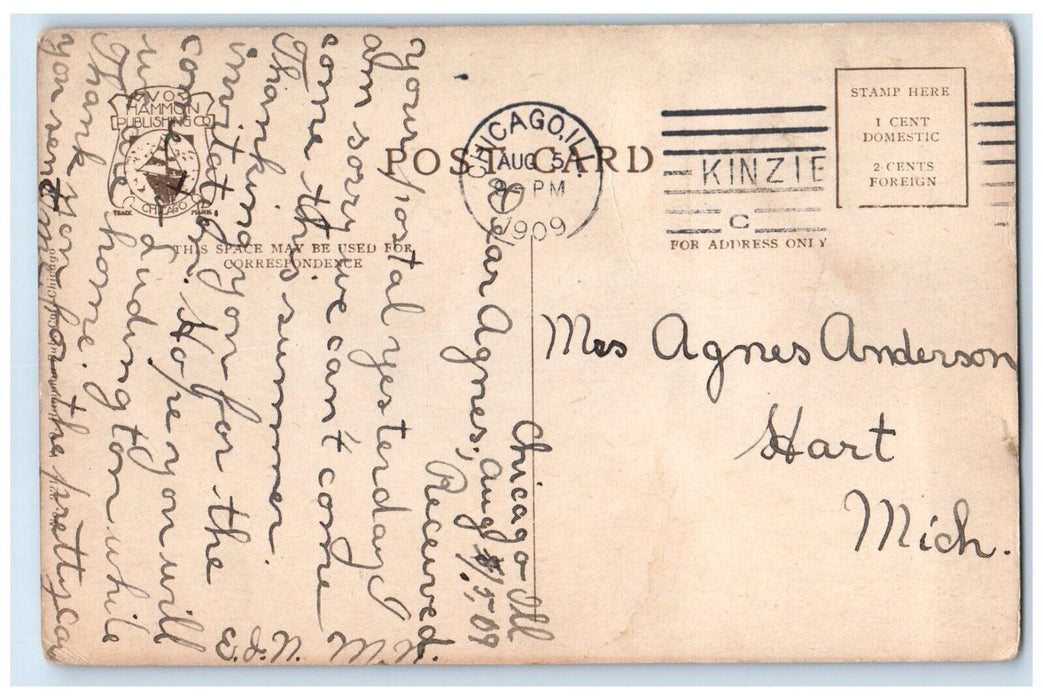 VO
HAMMON
PUBLISHING CO.
CHICAGO
TRADE MARK
POST CARD
THIS SPACE MAY BE USED FOR
CORRESPONDENCE
CHICAGO, ILL.
AUG 5
8 - PM
1909
KINZIE
C
STAMP HERE
1 CENT
DOMESTIC
2 CENTS
FOREIGN
FOR ADDRESS ONLY
Mrs Agnes Anderson
Hart
Mich.
Chicago Ill
Aug 5, 09
Dear Agnes;
Received
your postal yesterday I
am sorry we can't come
come this summer.
Thanking you for the
invitation. Hope you will
come to Ludington while
home.
Thank you for the pretty car
you sent me.